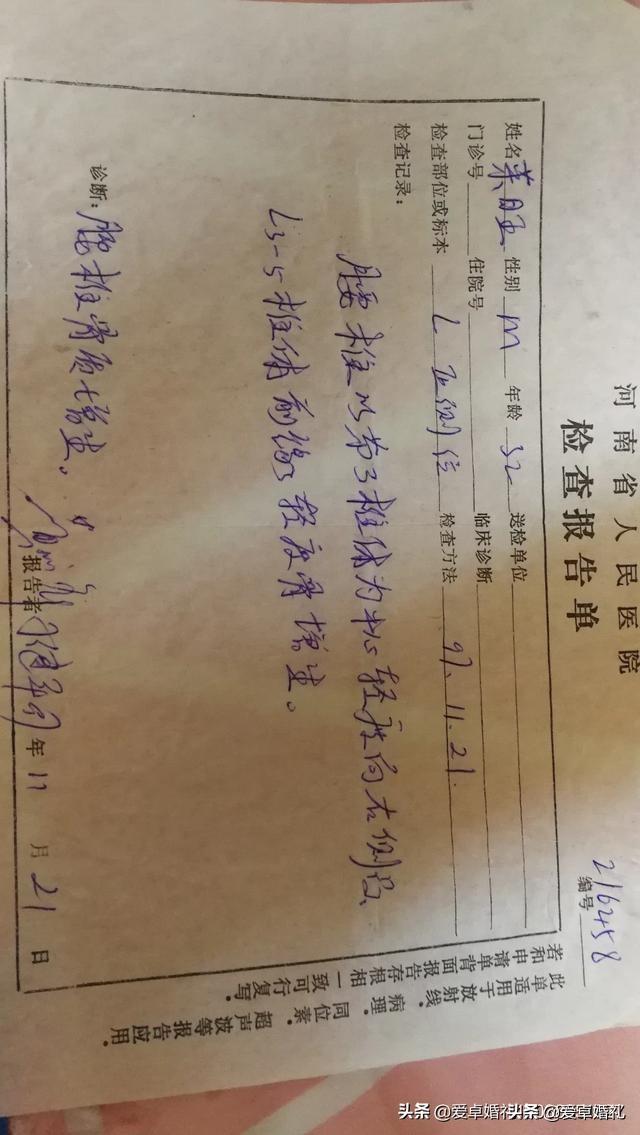 河南省人民医院
检查报告单
编号 216458
姓名 性别 M 年龄 32 送检单位
门诊号 住院号 临床诊断
检查部位或标本 L 正侧位 检查方法 97.11.21.
检查记录:
腰椎以第3椎体为中心轻度向右侧弯、
L3-5椎体前缘轻度骨增生。
诊断: 腰椎骨质增生。
报告者 年 11 月 21 日
此单适用于放射线. 病理. 同位素. 超声波等报告应用.
若和申请单背面报告存根相一致可行复写.
头条 @爱卓婚礼
头条 @爱卓婚礼